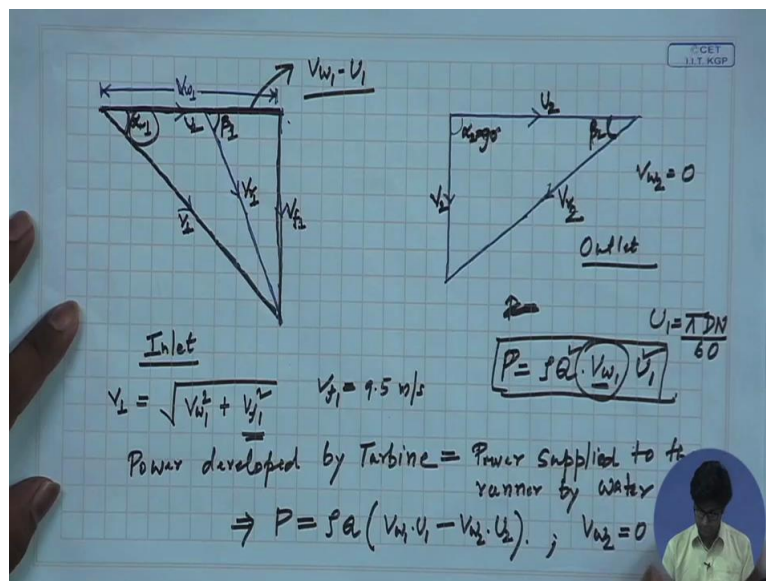 © CET
I.I.T. KGP
Vw1
Vw1 - U1
α1
U1
β1
V1
Vr1
Vf1
U2
α2=90°
β2
V2
Vr2
Vw2 = 0
Outlet
Inlet
V1 = √(Vw1² + Vf1²)
Vf1 = 9.5 m/s
P = ρQ · Vw1 U1
U1 = πDN/60
Power developed by Turbine = Power supplied to the
runner by water
⇒ P = ρQ (Vw1·U1 - Vw2·U2). ; Vw2 = 0